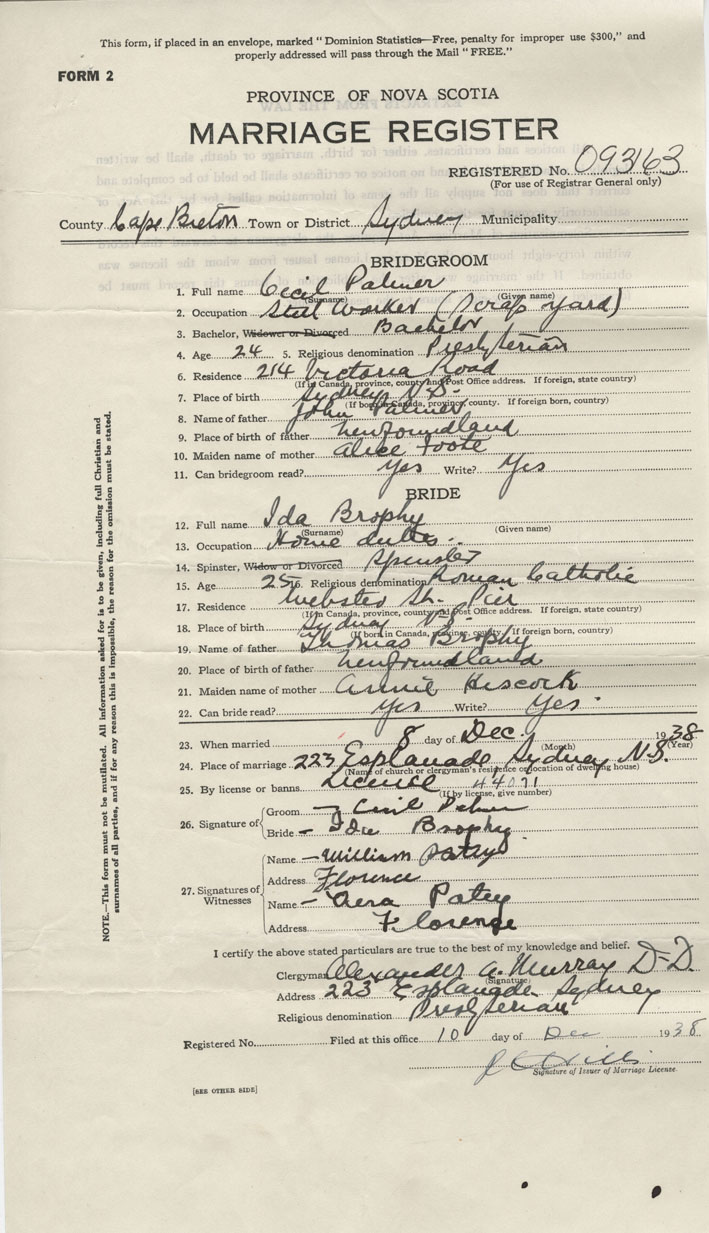 This form, if placed in an envelope, marked "Dominion Statistics—Free, penalty for improper use $300," and
properly addressed will pass through the Mail "FREE."
FORM 2
PROVINCE OF NOVA SCOTIA
MARRIAGE REGISTER
REGISTERED No. 093163
(For use of Registrar General only)
County Cape Breton Town or District Sydney Municipality
BRIDEGROOM
1. Full name Cecil Palmer
(Surname) (Given name)
2. Occupation Steel Worker (Scrap Yard)
3. Bachelor, Widower or Divorced Bachelor
4. Age 24 5. Religious denomination Presbyterian
6. Residence 214 Victoria Road
(If in Canada, province, county and Post Office address. If foreign, state country)
7. Place of birth Sydney N.S.
(If born in Canada, province, county. If foreign born, country)
8. Name of father John Palmer
9. Place of birth of father Newfoundland
10. Maiden name of mother Alice Foote
11. Can bridegroom read? Yes Write? Yes
BRIDE
12. Full name Ida Brophy
(Surname) (Given name)
13. Occupation Home duties
14. Spinster, Widow or Divorced Spinster
15. Age 25 16. Religious denomination Roman Catholic
17. Residence Webster St. Pier
(If in Canada, province, county and Post Office address. If foreign, state country)
18. Place of birth Sydney N.S.
(If born in Canada, province, county. If foreign born, country)
19. Name of father Thomas Brophy
20. Place of birth of father Newfoundland
21. Maiden name of mother Annie Hiscock
22. Can bride read? Yes Write? Yes
23. When married 8 day of Dec. 1938
(Month) (Year)
24. Place of marriage 223 Esplanade Sydney N.S.
(Name of church or clergyman's residence or location of dwelling house)
25. By license or banns Licence 44071
(If by license, give number)
26. Signature of Groom — Cecil Palmer
Bride — Ida Brophy
27. Signatures of Witnesses
Name — William Patey
Address Florence
Name — Vera Patey
Address Florence
I certify the above stated particulars are true to the best of my knowledge and belief.
Clergyman Alexander A. Murray D-D.
(Signature)
Address 223 Esplanade Sydney
Religious denomination Presbyterian
Registered No. Filed at this office 10 day of Dec 1938
Signature of Issuer of Marriage License
[SEE OTHER SIDE]
NOTE.—This form must not be mutilated. All information asked for is to be given, including full Christian and
surnames of all parties, and if for any reason this is impossible, the reason for the omission must be stated.